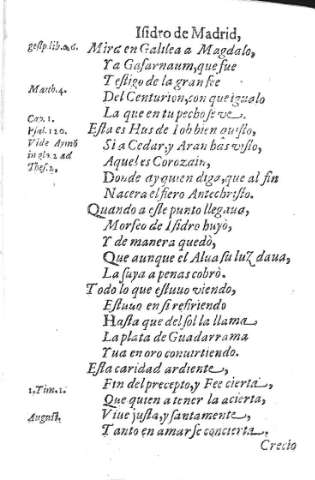 Isidro de Madrid,
gesp. lib. 2. 6.
Mira en Galilea a Magdalo,
Y a Cafarnaum, que fue
Testigo de la gran fee
Matth. 4.
Del Centurion, con que igualo
La que en tu pecho se ve.
Cap. 1.
Esta es Hus de Iob bien quisto,
Psal. 120.
Si a Cedar, y Aran has visto,
Vide
Aquel es Corozain,
in ad
Donde ay quien diga, que al fin
Thes. 2.
Nacera el fiero Antechristo.
Quando a este punto llegaua,
Morfeo de Isidro huyò,
Y de manera quedò,
Que aunque el Alua su luz daua,
La suya a penas cobrò.
Todo lo que estuuo viendo,
Estuuo en si refiriendo
Hasta que del sol la llama
La plata de Guadarrama
Yua en oro conuirtiendo.
Esta caridad ardiente,
1. Tim. 1.
Fin del precepto, y Fee cierta,
Que quien a tener la acierta,
August.
Viue justa, y santamente,
Tanto en amarse concierta.
Crecio